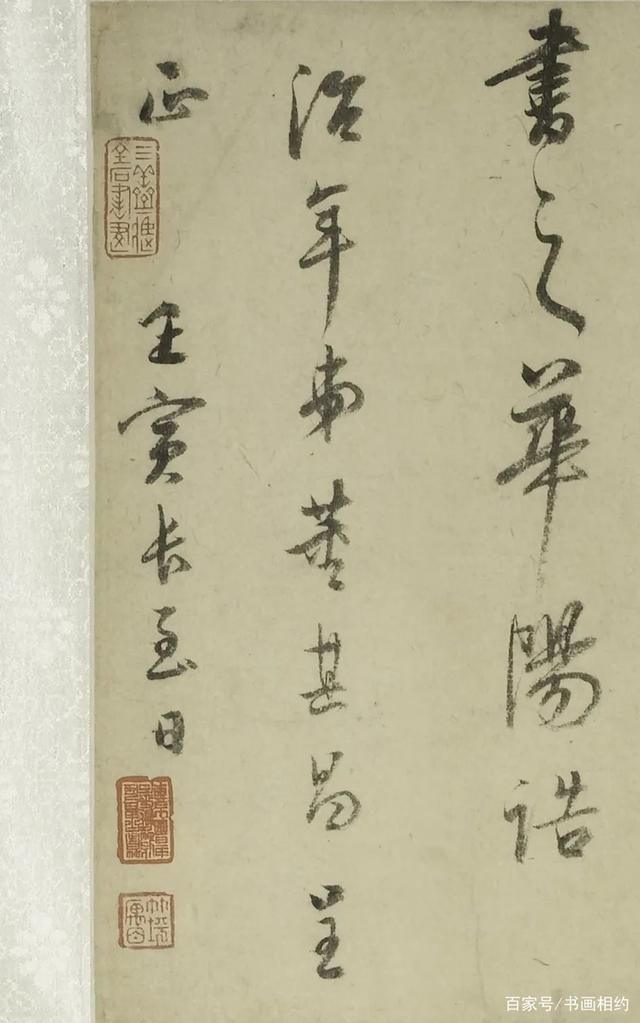 書之華陽誥
治年弟董其昌呈
正
壬寅长至日
百家号/书画相约